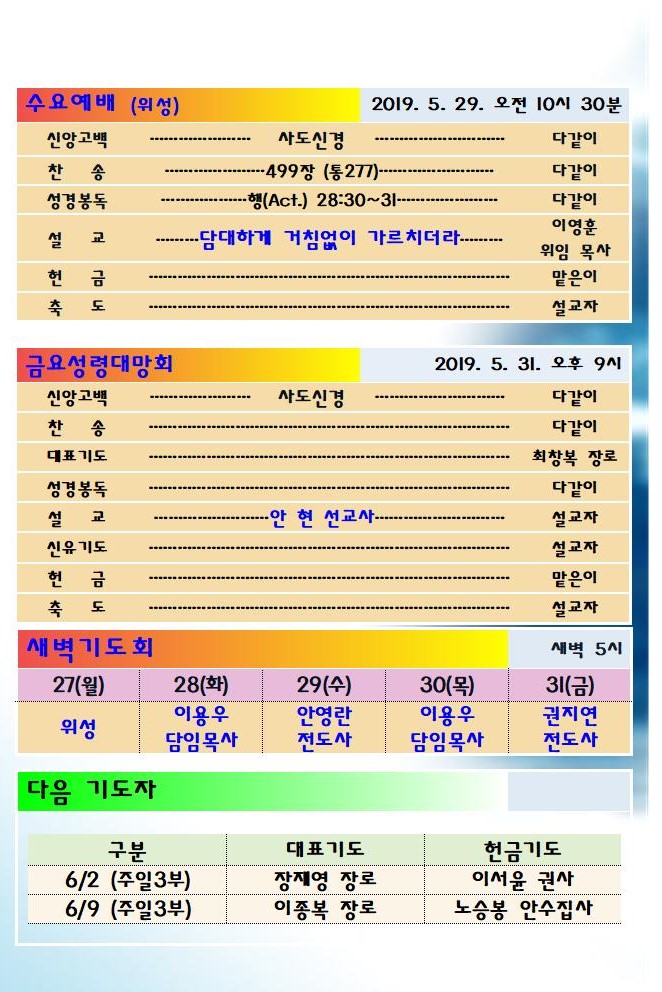 수요예배 (위성) 2019. 5. 29. 오전 10시 30분
신앙고백 --------------------- 사도신경 --------------------------- 다같이
찬 송 ---------------------499장 (통277)------------------------ 다같이
성경봉독 ------------------행(Act.) 28:30~31--------------------- 다같이
설 교 ---------담대하게 거침없이 가르치더라--------- 이영훈
위임 목사
헌 금 --------------------------------------------------------------------------- 맡은이
축 도 --------------------------------------------------------------------------- 설교자
금요성령대망회 2019. 5. 31. 오후 9시
신앙고백 --------------------- 사도신경 --------------------------- 다같이
찬 송 --------------------------------------------------------------------------- 다같이
대표기도 --------------------------------------------------------------------------- 최창복 장로
성경봉독 --------------------------------------------------------------------------- 다같이
설 교 ------------------------안 현 선교사--------------------------- 설교자
신유기도 --------------------------------------------------------------------------- 설교자
헌 금 --------------------------------------------------------------------------- 맡은이
축 도 --------------------------------------------------------------------------- 설교자
새벽기도회 새벽 5시
27(월) 28(화) 29(수) 30(목) 31(금)
위성 이용우 담임목사 안영란 전도사 이용우 담임목사 권지연 전도사
다음 기도자
구분 대표기도 헌금기도
6/2 (주일3부) 장재영 장로 이서윤 권사
6/9 (주일3부) 이종복 장로 노승봉 안수집사